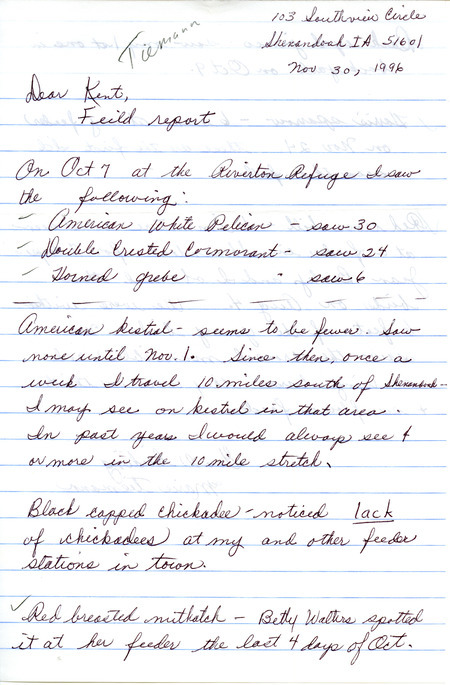 103 Southview Circle
Shenandoah IA 51601
Nov 30, 1996
Tiemann
Dear Kent,
Feild report
On Oct 7 at the Riverton Refuge I saw
the following:
- American White Pelican - saw 30
- Double Crested Cormorant - saw 24
- Horned grebe " saw 6
American kestral - seems to be fewer. Saw
none until Nov. 1. Since then, once a
week I travel 10 miles south of Shenandoah -
I may see on kestrel in that area.
In past years I would always see 4
or more in the 10 mile stretch.
Black capped chickadee - noticed lack
of chickadees at my and other feeder
stations in town.
✓ Red breasted nuthatch - Betty Walters spotted
it at her feeder the last 4 days of Oct.